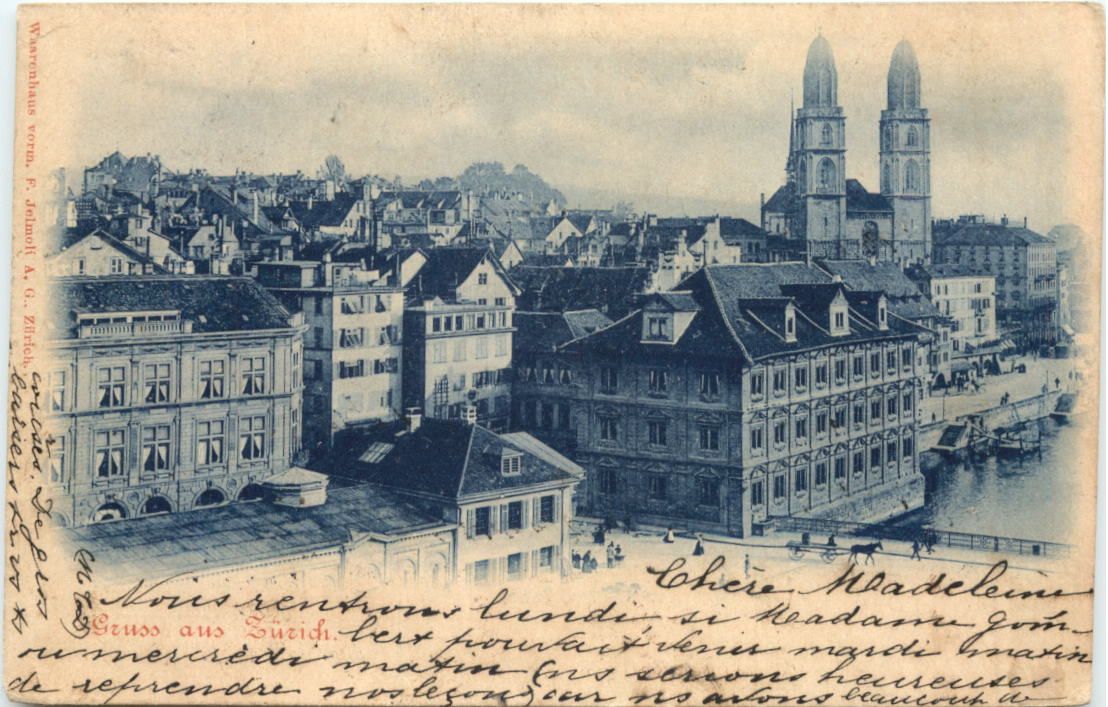 Waarenhaus vorm. F. Jelmoli A. G., Zürich.
Gruss aus Zürich.
Chère Madeleine
Nous rentrons lundi, si Madame Gom-
bert pouvait venir mardi matin
ou mercredi matin (ns serions heureuses
de reprendre nos leçons) car ns avons beaucoup de
courses. De gros
baisers à vs tx